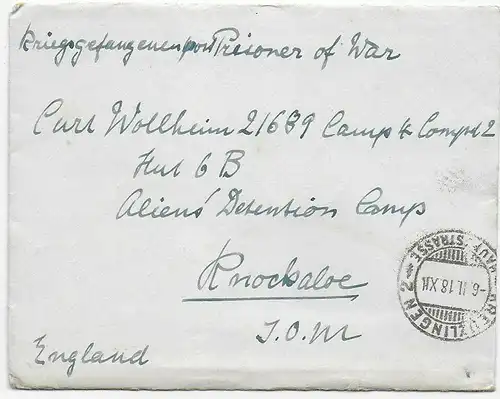 Kriegsgefangenenpost Prisoner of War
Curt Wollheim 21639 Camp 4 Compd 2
Hut 6 B
Aliens' Detention Camp
Knockaloe
I.O.M
England
KREUZLINGEN 2
HAUPTSTRASSE
-6.II.18.XII